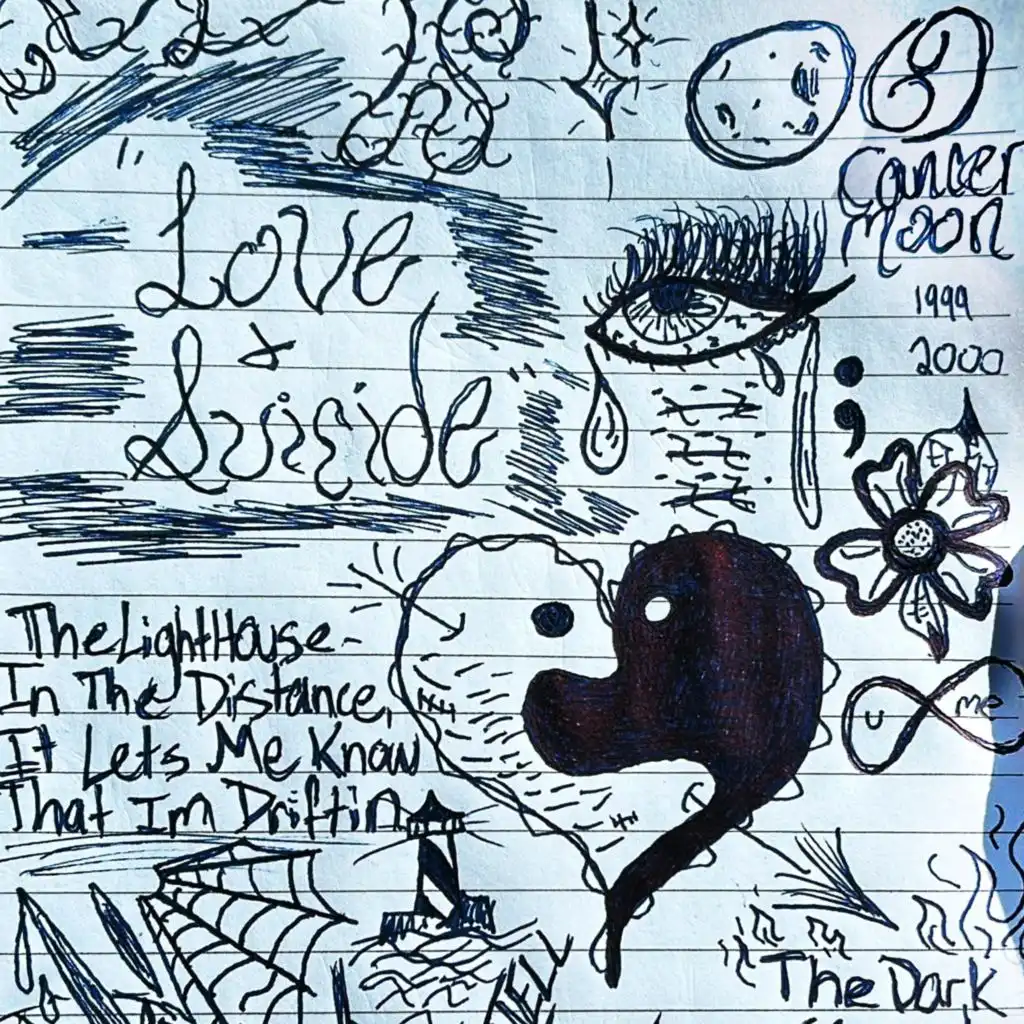 Cancer
Moon
1999
2000
Love
&
Suicide
;
U
me
TheLightHouse-
In The Distance,
It Lets Me Know
That Im Driftin
The Dark